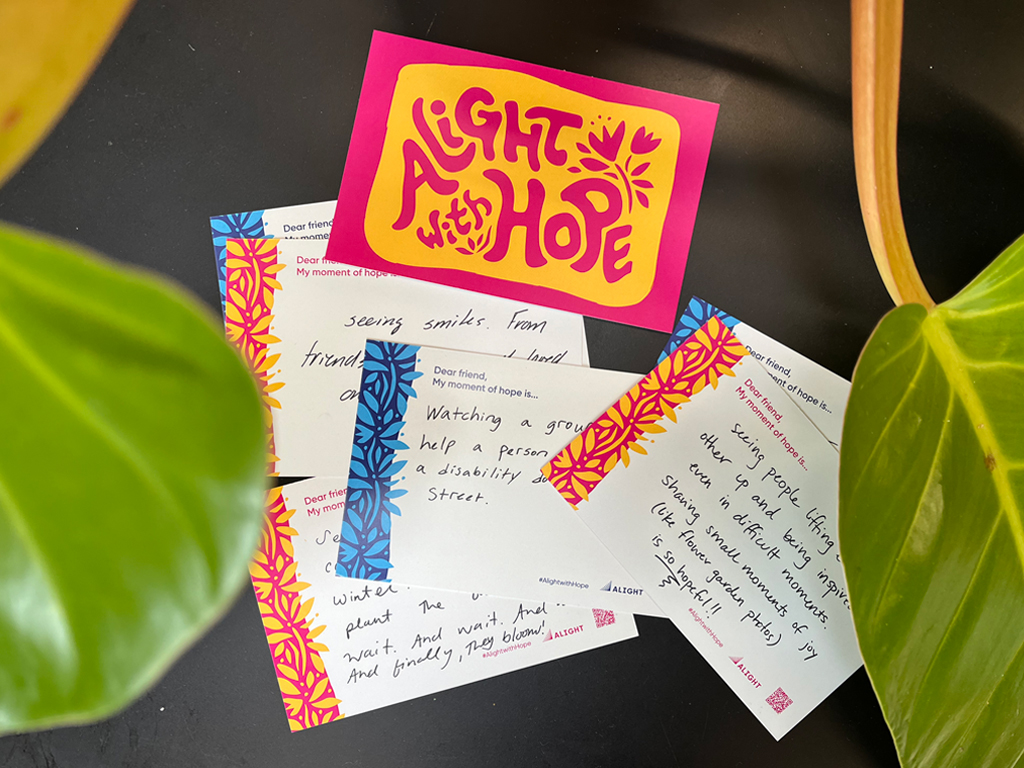 ALIGHT
with HOPE
Dear friend,
My mome
Dear
My moment of hope
seeing smiles. From
friends loved
on
Dear friend,
My moment of hope is...
Watching a grou
help a person
a disability do
Street.
#AlightwithHope ALIGHT
Dear friend,
My moment of hope is...
Dear friend,
My moment of hope is...
seeing people lifting
other up and being inspired
even in difficult moments.
sharing small moments of joy
(like flower garden photos)
is so hopeful!!
#AlightwithHope
ALIGHT
Dear frie
My mom
Se
c
winter
plant the
wait. And wait. And
And finally, they bloom!
#AlightwithHope ALIGHT